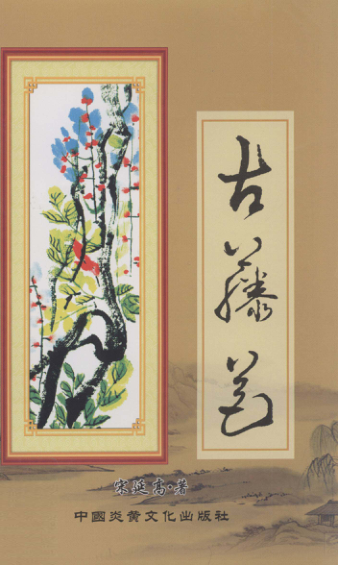 古藤
宋延高·著
中國炎黄文化出版社